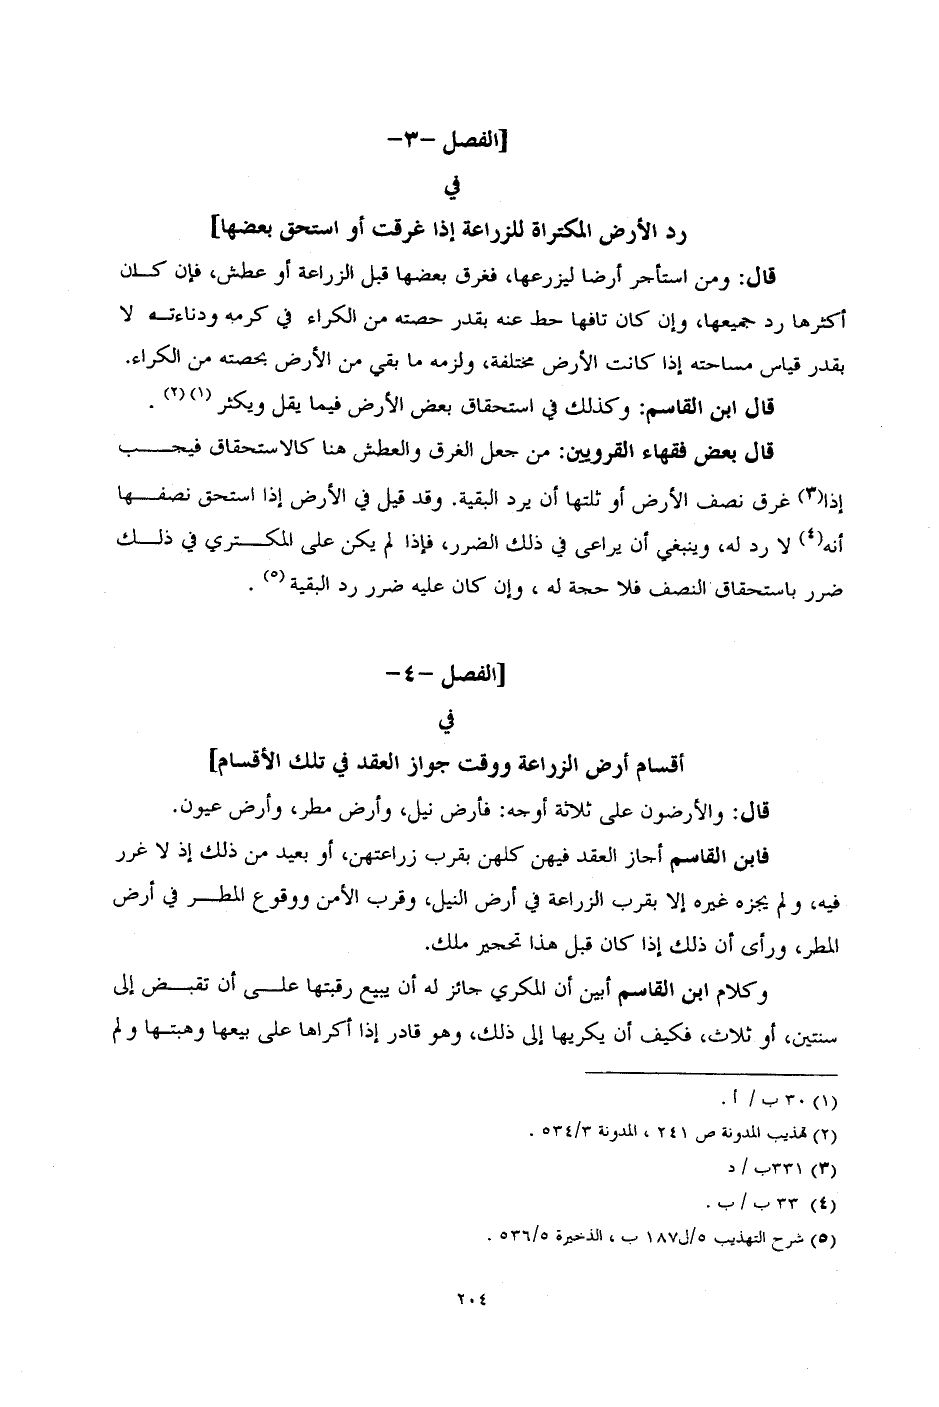 [الفصل -٣-
في
رد الأرض المكتراة للزراعة إذا غرقت أو استحق بعضها]
قال: ومن استأجر أرضا ليزرعها، فغرق بعضها قبل الزراعة أو عطش، فإن كان
أكثرها رد جميعها، وإن كان تافها حط عنه بقدر حصته من الكراء في كرمه ودناءته لا
بقدر قياس مساحته إذا كانت الأرض مختلفة، ولزمه ما بقي من الأرض بحصته من الكراء.
قال ابن القاسم: وكذلك في استحقاق بعض الأرض فيما يقل ويكثر (١)(٢) .
قال بعض فقهاء القرويين: من جعل الغرق والعطش هنا كالاستحقاق فيجب
إذا(٣) غرق نصف الأرض أو ثلثها أن يرد البقية. وقد قيل في الأرض إذا استحق نصفها
أنه(٤) لا رد له، وينبغي أن يراعى في ذلك الضرر، فإذا لم يكن على المكتري في ذلك
ضرر باستحقاق النصف فلا حجة له ، وإن كان عليه ضرر رد البقية (٥) .
[الفصل -٤-
في
أقسام أرض الزراعة ووقت جواز العقد في تلك الأقسام]
قال: والأرضون على ثلاثة أوجه: فأرض نيل، وأرض مطر، وأرض عيون.
فابن القاسم أجاز العقد فيهن كلهن بقرب زراعتهن، أو بعيد من ذلك إذ لا غرر
فيه، ولم يجزه غيره إلا بقرب الزراعة في أرض النيل، وقرب الأمن ووقوع المطر في أرض
المطر، ورأى أن ذلك إذا كان قبل هذا تحجير ملك.
وكلام ابن القاسم أبين أن المكري جائز له أن يبيع رقبتها على أن تقبض إلى
سنتين، أو ثلاث، فكيف أن يكريها إلى ذلك، وهو قادر إذا أكراها على بيعها وهبتها ولم
(١) ٣٠ ب/ أ .
(٢) تهذيب المدونة ص ٢٤١ ، المدونة ٥٣٤/٣ .
(٣) ٣٣١ب/ د
(٤) ٣٣ ب/ ب .
(٥) شرح التهذيب ٥/ل١٨٧ ب ، الذخيرة ٥٣٦/٥ .
٢٠٤